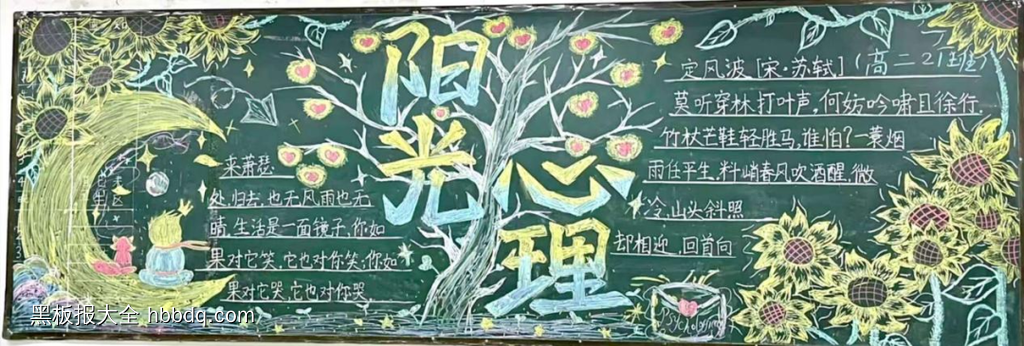 阳光心理
定风波[宋·苏轼](高二21班)
莫听穿林打叶声,何妨吟啸且徐行.
竹杖芒鞋轻胜马,谁怕?一蓑烟
雨任平生.料峭春风吹酒醒,微
冷,山头斜照
却相迎.回首向
来萧瑟
处,归去,也无风雨也无
晴.生活是一面镜子,你如
果对它笑,它也对你笑,你如
果对它哭,它也对你哭
Psychology
黑板报大全 hbbdq.com